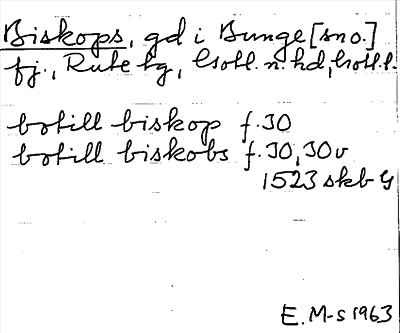 Biskops, gd i Bunge [sno.]
fj., Rute tg, Gotl. n. hd, Gotl. l.
botill biskop f.30
botill biskobs f.30, 30v
1523 skb G
E. M-s 1963